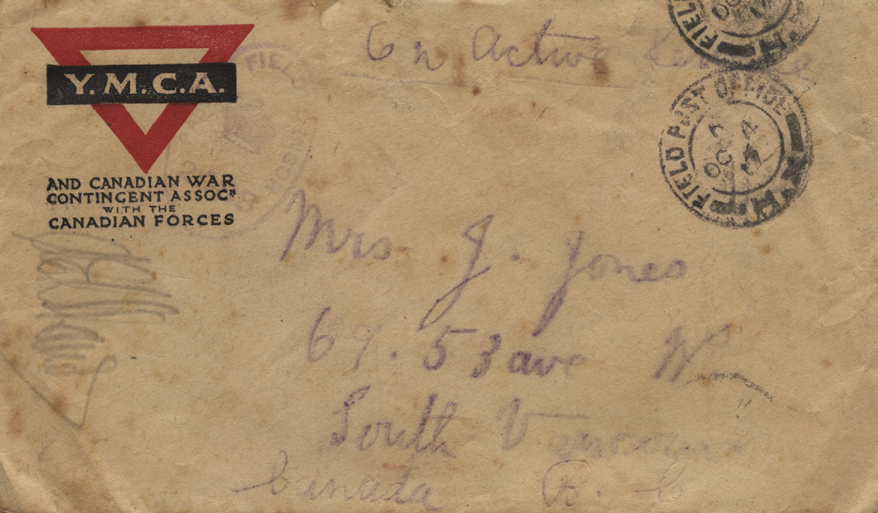 On Active Service
Y.M.C.A.
AND CANADIAN WAR
CONTINGENT ASSOCN
WITH THE
CANADIAN FORCES
FIELD POST OFFICE
4
OC
17
FIELD
Mrs. J. Jones
67. 53 ave W.
South Vancouver
Canada B. C